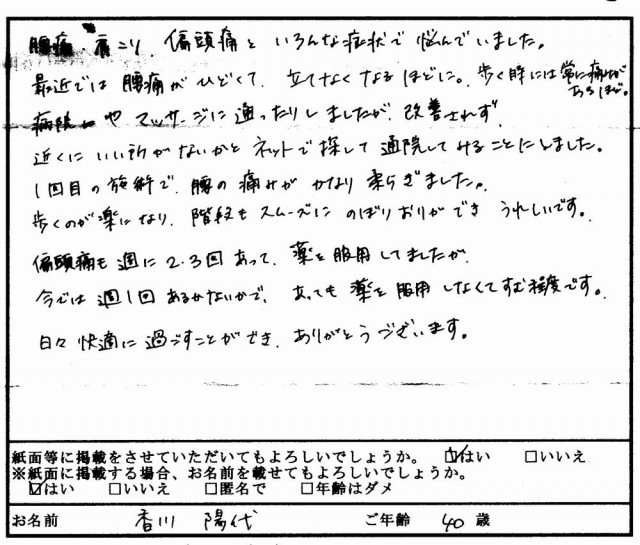 腰痛、肩こり、偏頭痛といろんな症状で悩んでいました。
最近では腰痛がひどくて、立てなくなるほどに。歩く時には常に痛みが
あるほど。
病院やマッサージに通ったりしましたが、改善されず、
近くにいい所がないかとネットで探して通院してみることにしました。
1回目の施術で、腰の痛みがかなり柔らぎました。
歩くのが楽になり、階段もスムーズにのぼりおりができうれしいです。
偏頭痛も週に2.3回あって、薬を服用してましたが、
今では週1回あるかないかで、あっても薬を服用しなくてすむ程度です。
日々快適に過ごすことができ、ありがとうございます。
紙面等に掲載をさせていただいてもよろしいでしょうか。 ☑はい □いいえ
※紙面に掲載する場合、お名前を載せてもよろしいでしょうか。
☑はい □いいえ □匿名で □年齢はダメ
お名前 香川 陽代 ご年齢 40 歳